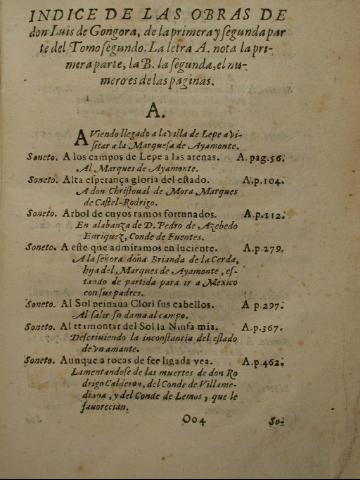 INDICE DE LAS OBRAS DE
don Luis de Gongora, de la primera y segunda par
te del Tomo segundo. La letra A. nota la pri-
mera parte, la B. la segunda, el nu-
mero es de las paginas.
A.
AViendo llegado a la villa de Lepe a vi-
sitar a la Marquesa de Ayamonte.
Soneto. A los campos de Lepe a las arenas. A. pag. 56.
Al Marques de Ayamonte.
Soneto. Alta esperança gloria del estado. A. p. 104.
A don Christoual de Mora Marques
de Castel-Rodrigo.
Soneto. Arbol de cuyos ramos fortunados. A. p. 112.
En alabanza de D. Pedro de Azebedo
Enriquez, Conde de Fuentes.
Soneto. A este que admiramos en luciente. A. p. 279.
A la señora doña Brianda de la Cerda,
hija del Marques de Ayamonte, es-
tando de partida para ir a Mexico
con sus padres.
Soneto. Al Sol peinaua Clori sus cabellos. A p. 297.
Al salir su dama al campo.
Soneto. Al tramontar del Sol la Ninfa mia. A. p. 367.
Descriuiendo la inconstancia del estado
de vn amante.
Soneto. Aunque a rocas de fee ligada vea. A. p. 462.
Lamentandose de las muertes de don Ro
drigo Calderon, del Conde de Villame-
diana, y del Conde de Lemos, que le
fauorecian.
Oo4 So-